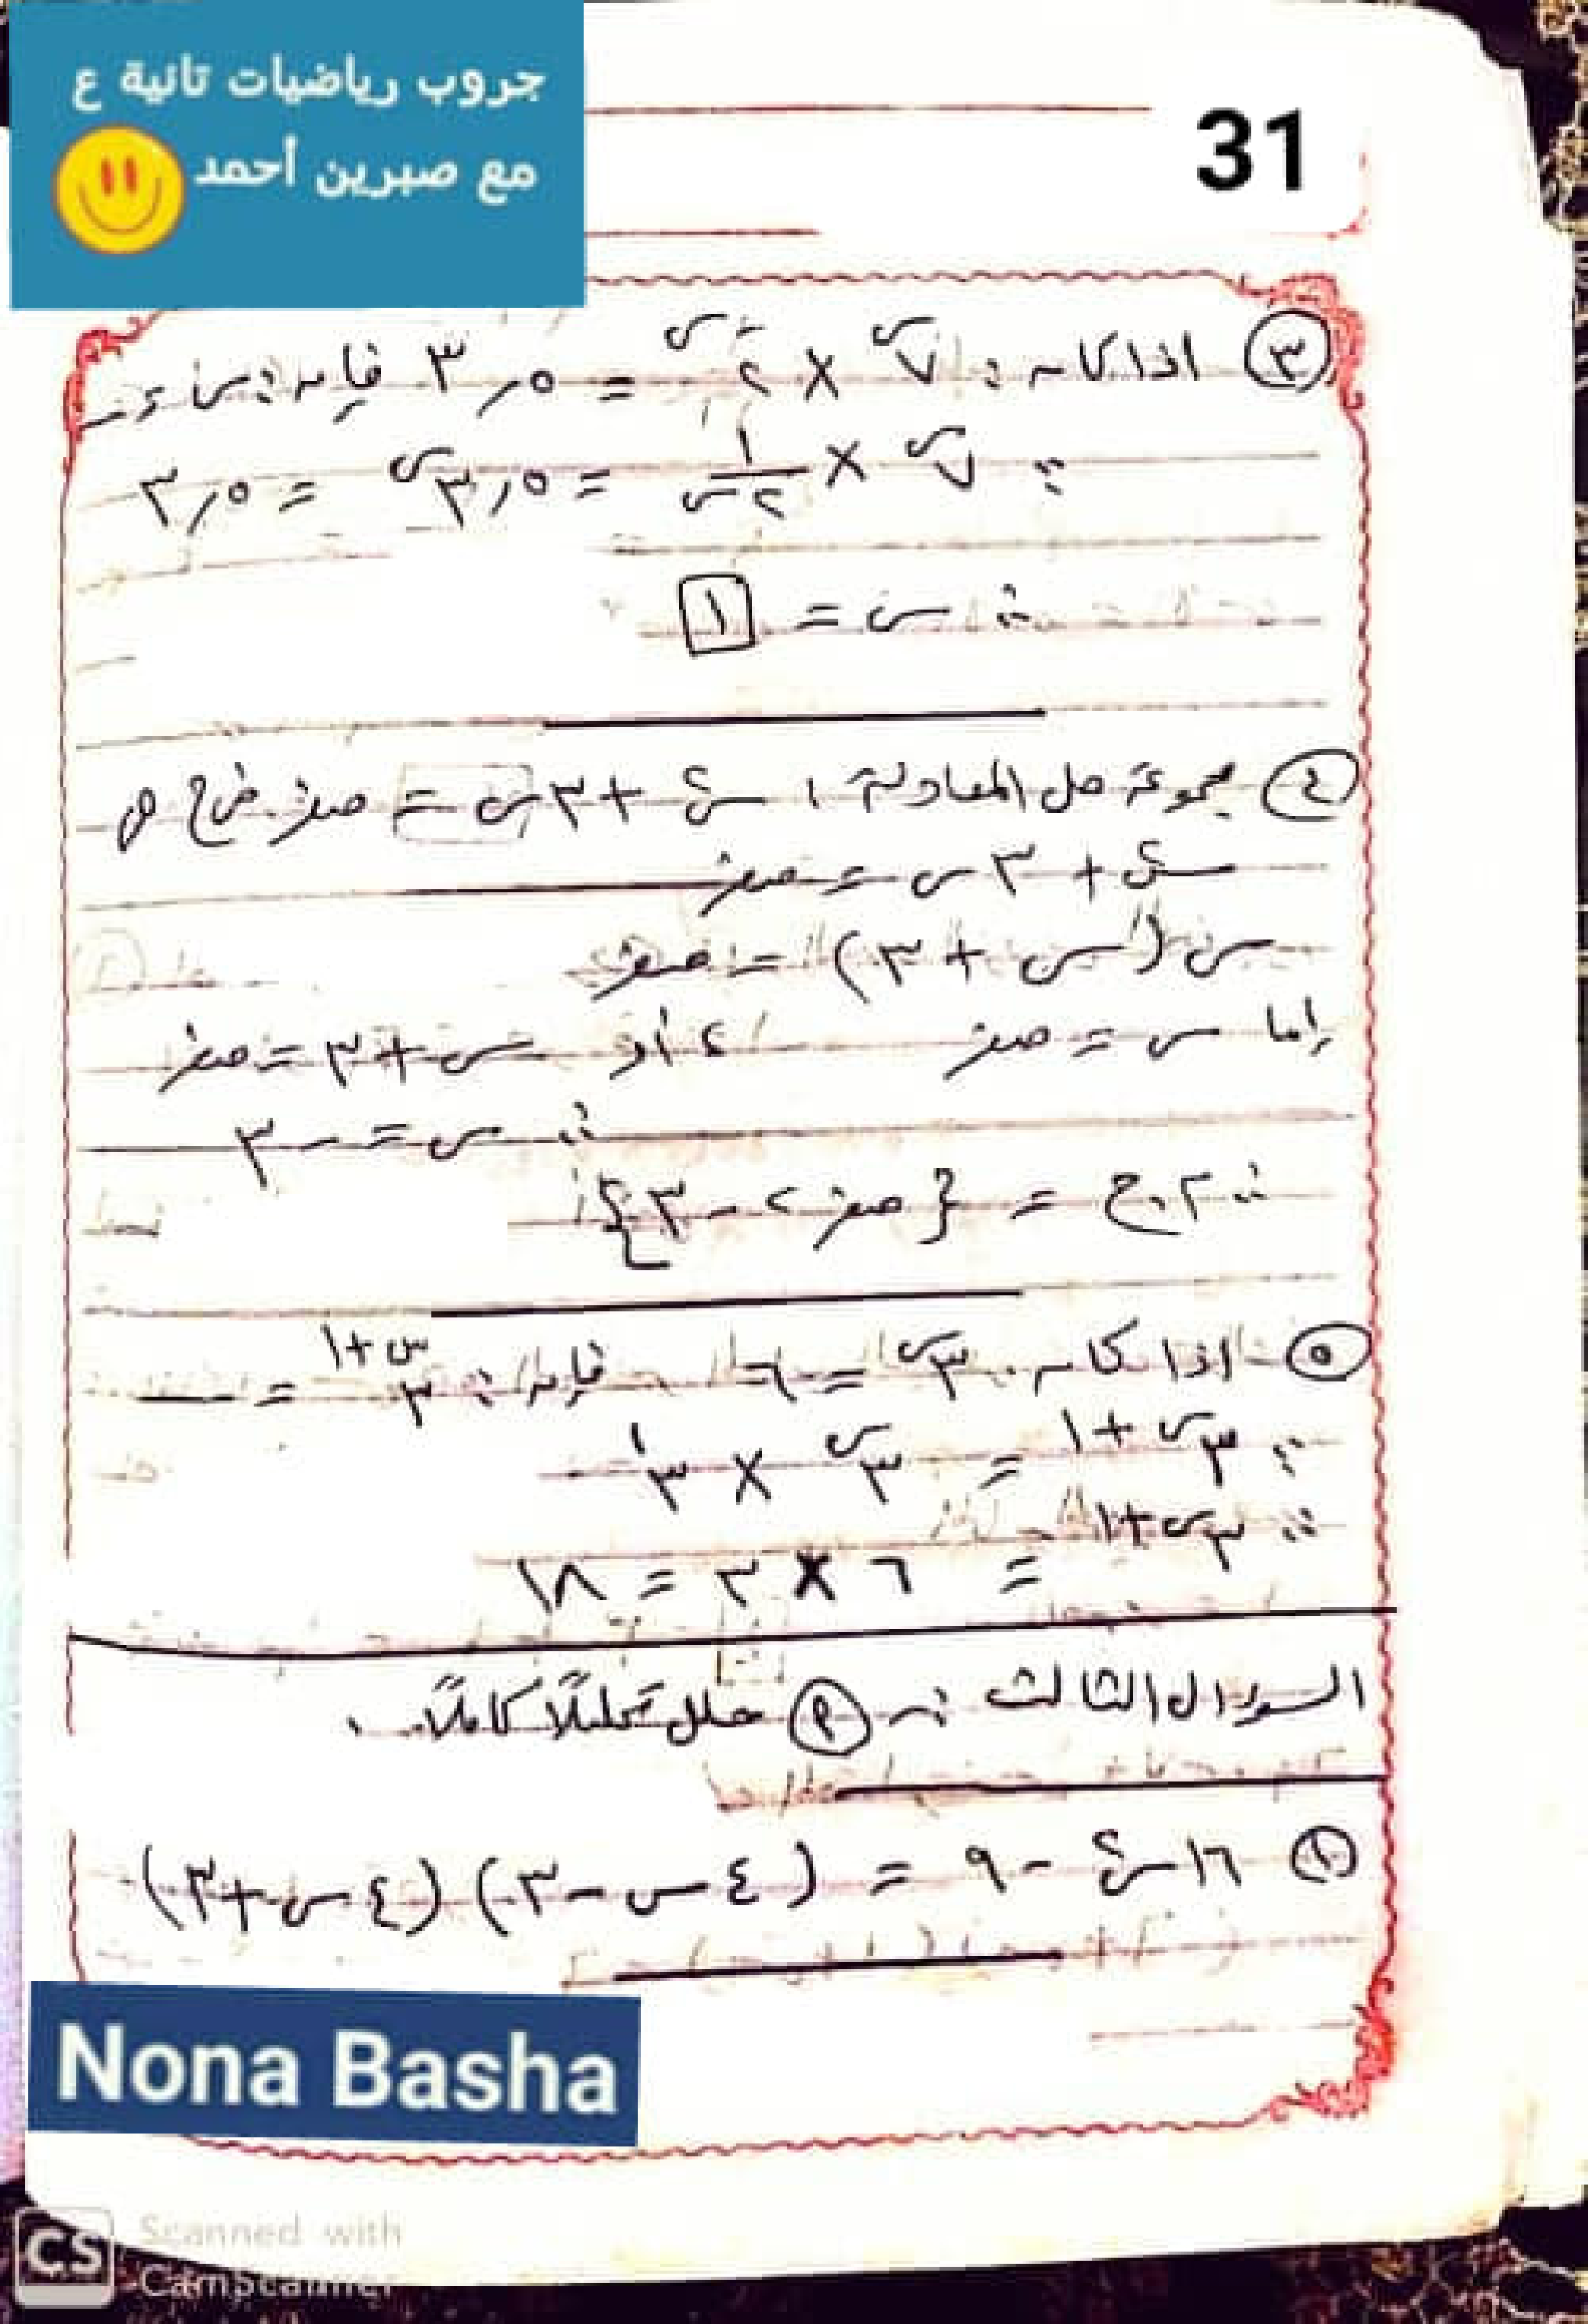 جروب رياضيات تانية ع
مع صبرين أحمد
31
٣ اذا كان : ٧^س × ٢^-س = ٣,٥ فإن : س = ...
∵ ٧^س × ١/٢^س = ٣,٥^س = ٣,٥
∴ س = ١
٤ مجموعة حل المعادلة : س٢ + ٣س = صفر في ح هي
س٢ + ٣س = صفر
س (س + ٣) = صفر
إما س = صفر ، أو س + ٣ = صفر
∴ س = -٣
∴ م.ح = {صفر ، -٣}
٥ اذا كان ٣^س = ٦ فإن : ٣^س+١ = ــــ
∵ ٣^س+١ = ٣^س × ٣^١
∴ ٣^س+١ = ٦ × ٣ = ١٨
السؤال الثالث :- ٩ حلل تحليلًا كاملًا .
١ ١٦س٢ - ٩ = (٤س - ٣) (٤س + ٣)
Nona Basha
CS Scanned with
CamScanner